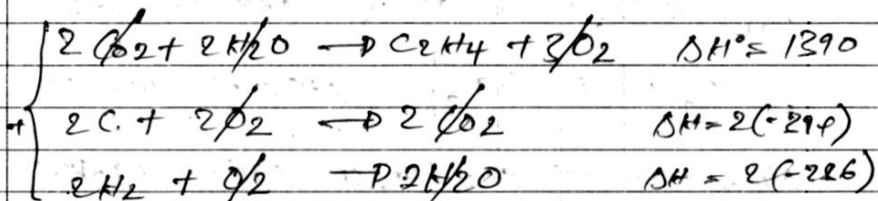 2CO2 + 2H2O → C2H4 + 3O2 ΔH° = 1390
+ 2C + 2O2 → 2CO2 ΔH = 2(-394)
2H2 + O2 → 2H2O ΔH = 2(-286)